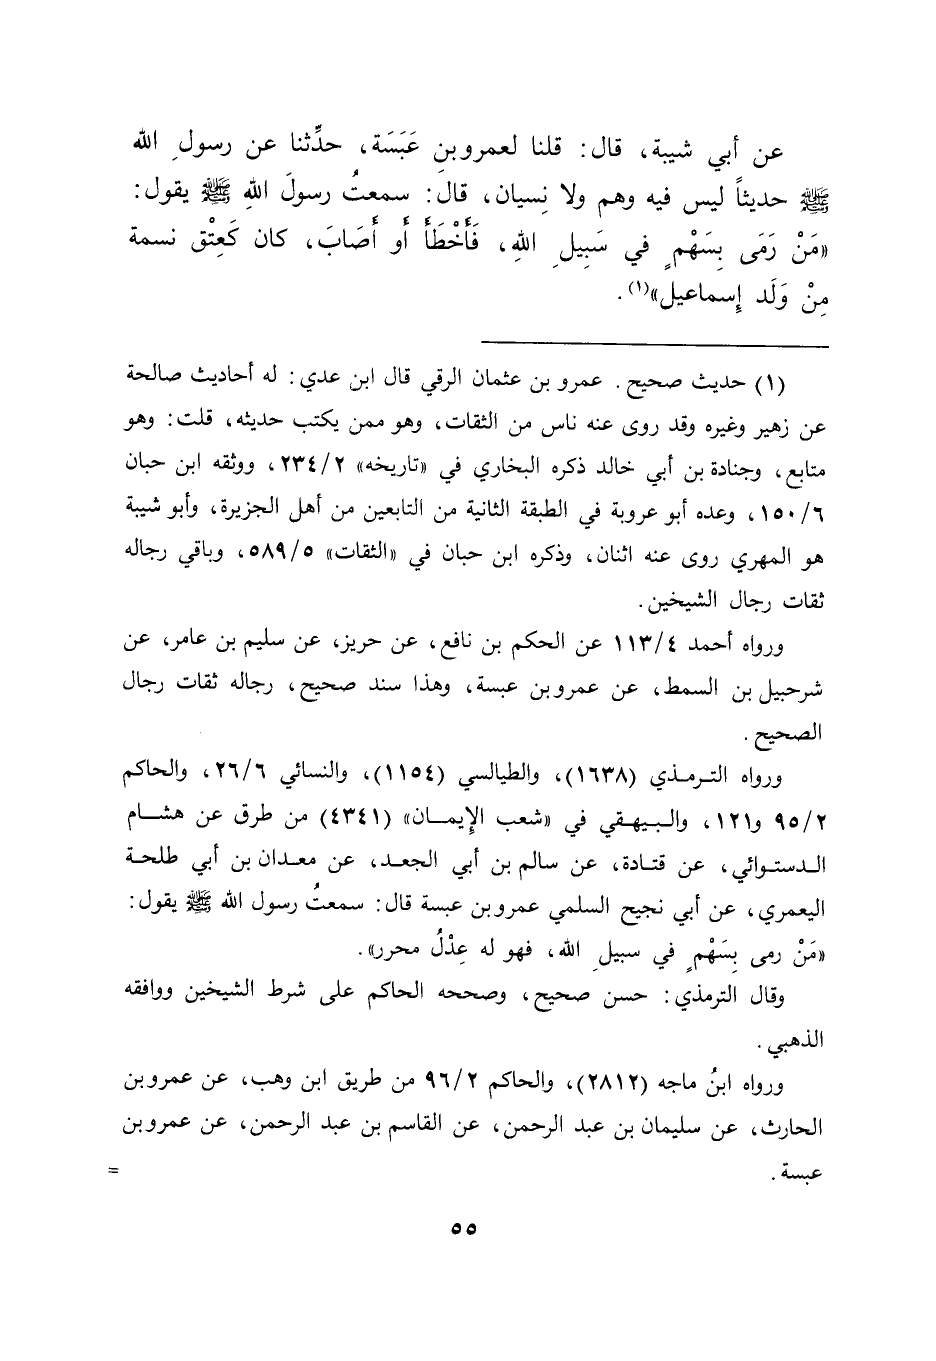 عن أبي شيبة، قال: قلنا لعمرو بنِ عَبَسَة، حدِّثنا عن رسولِ الله
ﷺ حديثاً ليس فيه وهم ولا نِسيان، قال: سمعتُ رسولَ اللهِ ﷺ يقول:
«مَنْ رَمَى بِسَهْمٍ في سَبِيلِ اللهِ، فَأَخْطَأَ أو أَصَابَ، كان كَعِتْقِ نسمة
مِنْ وَلَد إِسماعيل»(١).
(١) حديث صحيح. عمرو بن عثمان الرقي قال ابن عدي: له أحاديث صالحة
عن زهير وغيره وقد روى عنه ناس من الثقات، وهو ممن يكتب حديثه، قلت: وهو
متابع، وجنادة بن أبي خالد ذكره البخاري في «تاريخه» ٢٣٤/٢، ووثقه ابن حبان
١٥٠/٦، وعده أبو عروبة في الطبقة الثانية من التابعين من أهل الجزيرة، وأبو شيبة
هو المهري روى عنه اثنان، وذكره ابن حبان في «الثقات» ٥٨٩/٥، وباقي رجاله
ثقات رجال الشيخين.
ورواه أحمد ١١٣/٤ عن الحكم بن نافع، عن حريز، عن سليم بن عامر، عن
شرحبيل بن السمط، عن عمرو بن عبسة، وهذا سند صحيح، رجاله ثقات رجال
الصحيح.
ورواه الترمذي (١٦٣٨)، والطيالسي (١١٥٤)، والنسائي ٢٦/٦، والحاكم
٩٥/٢ و١٢١، والبيهقي في «شعب الإيمان» (٤٣٤١) من طرق عن هشام
الدستوائي، عن قتادة، عن سالم بن أبي الجعد، عن معدان بن أبي طلحة
اليعمري، عن أبي نجيح السلمي عمرو بن عبسة قال: سمعتُ رسول الله ﷺ يقول:
«مَنْ رمى بِسَهْمٍ في سبيلِ الله، فهو له عِدْلُ محرر».
وقال الترمذي: حسن صحيح، وصححه الحاكم على شرط الشيخين ووافقه
الذهبي.
ورواه ابنُ ماجه (٢٨١٢)، والحاكم ٩٦/٢ من طريق ابن وهب، عن عمرو بن
الحارث، عن سليمان بن عبد الرحمن، عن القاسم بن عبد الرحمن، عن عمرو بن
عبسة. =
٥٥